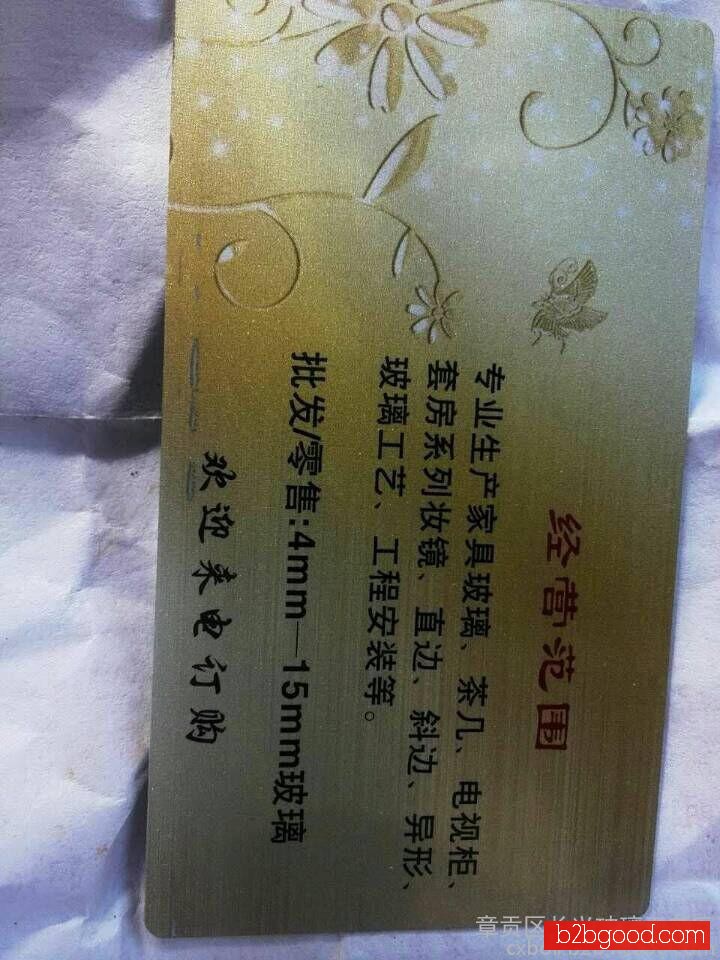 经营范围
专业生产家具玻璃、茶几、电视柜、
套房系列妆镜、直边、斜边、异形、
玻璃工艺、工程安装等。
批发/零售:4mm—15mm玻璃
欢迎来电订购
b2bgood.com